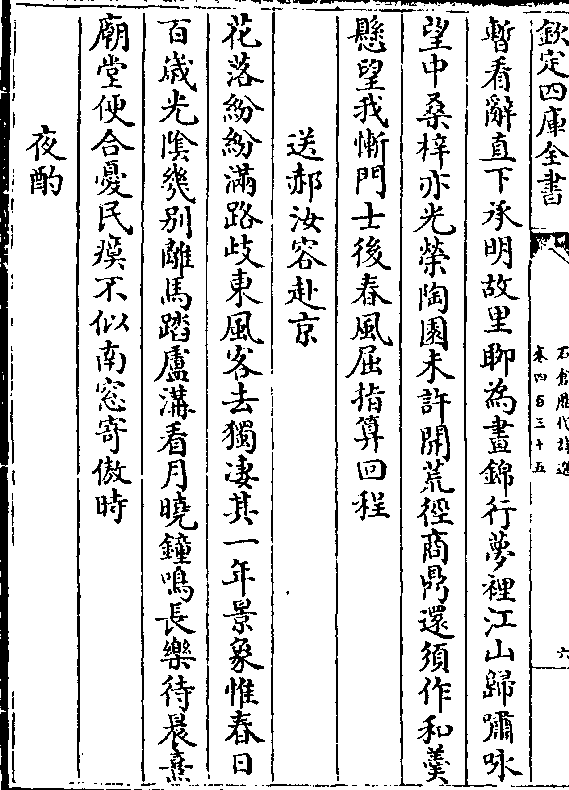 欽定四庫全書
石倉歴代詩選
卷四百三十五
六
暫看辭直下承明故里聊為晝錦行夢裡江山歸嘯咏
望中桑梓亦光榮陶園未許開荒徑商鼎還須作和羹
懸望我慚門士後春風屈指算回程
送郝汝容赴京
花落紛紛滿路歧東風客去獨凄其一年景象惟春日
百歲光陰幾别離馬踏盧溝看月曉鐘鳴長樂待晨熹
廟堂便合憂民瘼不似南窓寄傲時
夜酌